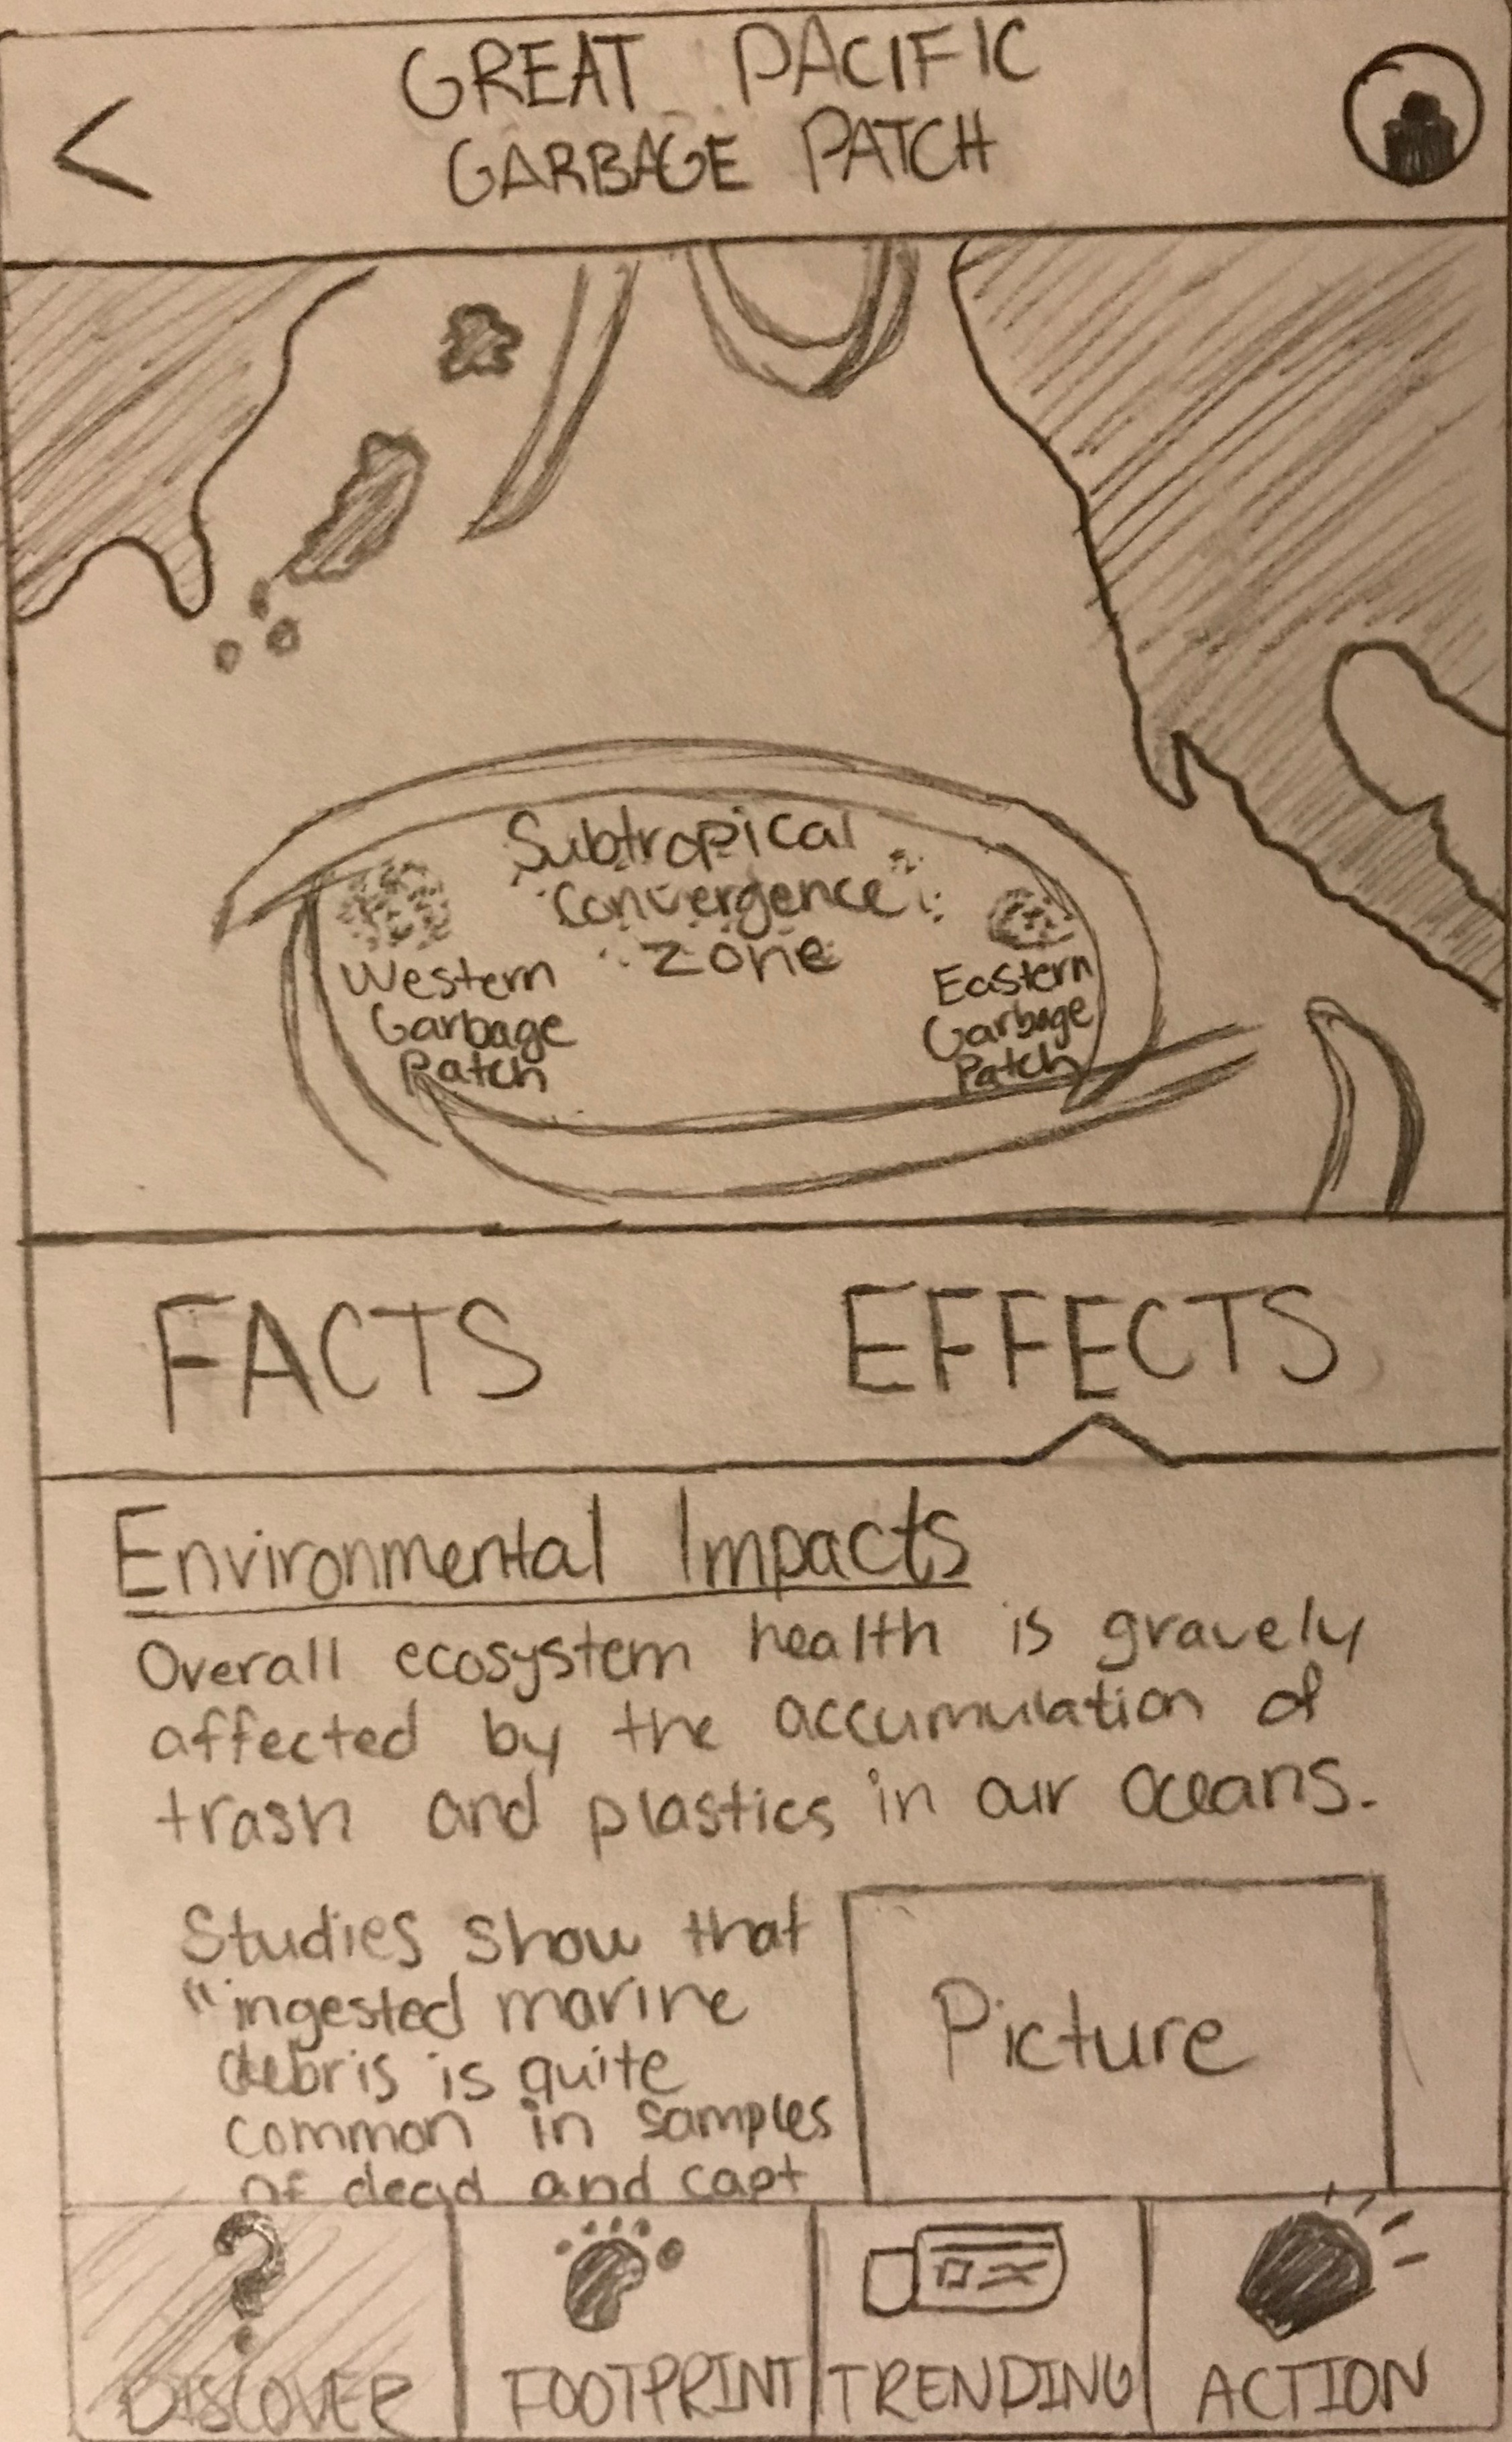 GREAT PACIFIC
GARBAGE PATCH
Subtropical
Convergence
Zone
Western
Garbage
Patch
Eastern
Garbage
Patch
FACTS
EFFECTS
Environmental Impacts
Overall ecosystem health is gravely
affected by the accumulation of
trash and plastics in our oceans.
Studies show that
"ingested marine
debris is quite
common in samples
of dead and capt
Picture
?
DISCOVER
FOOTPRINT
TRENDING
ACTION